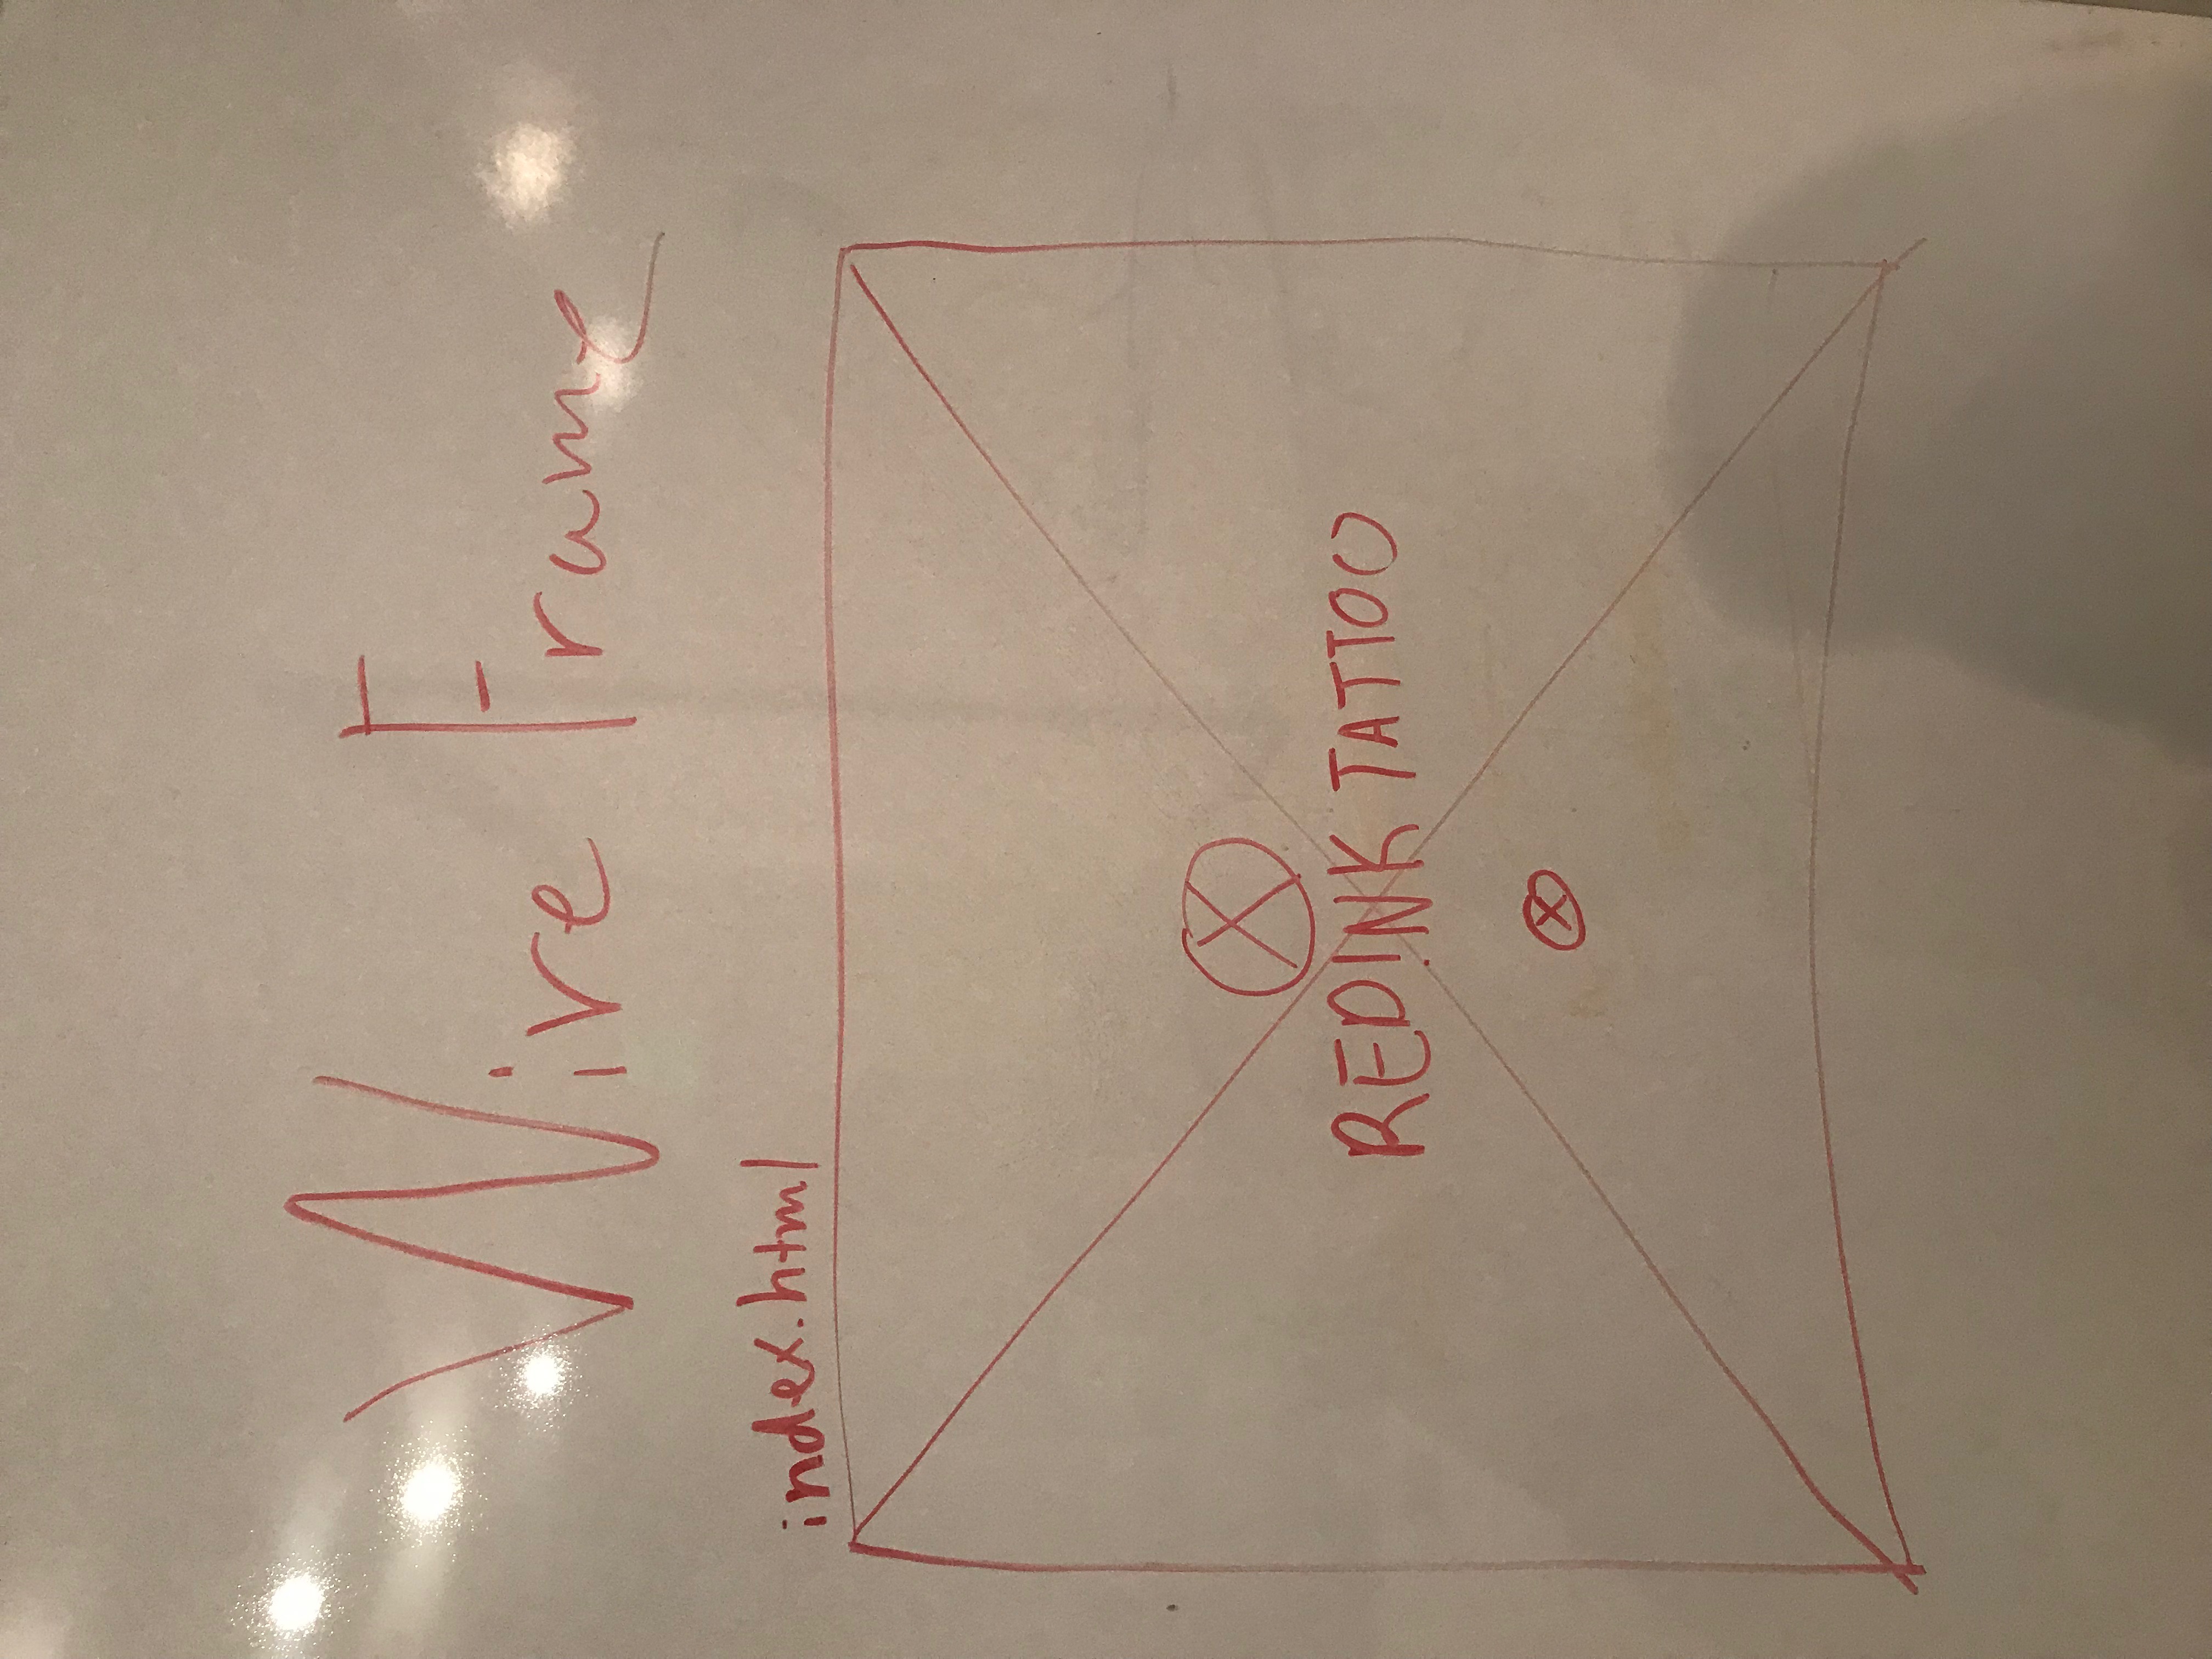 Wire Frame
index.html
X
REDINK TATTOO
X